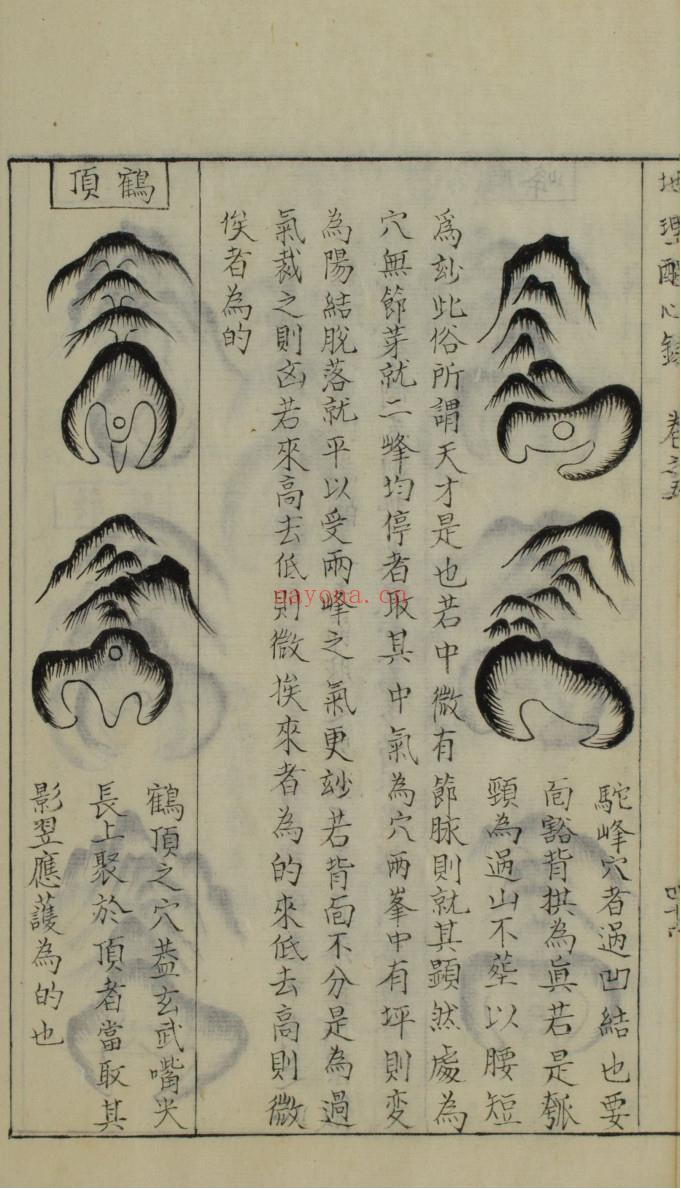 地理醒心錄 卷之五
四十六
駝峰穴者過凹結也要
面豁背拱為眞若是瓠
頸為過山不塟以腰短
爲玅此俗所謂天才是也若中微有節脉則就其顕然處為
穴無節芽就二峰均停者取其中氣為穴两峯中有坪則变
為陽結脫落就平以受兩峰之氣更玅若背面不分是為過
氣裁之則凶若來高去低則微挨來者為的來低去高則微
俟者為的
鶴頂
鶴頂之穴葢玄武嘴尖
長上聚於頂者當取其
影翌應護為的也
nayona.cn